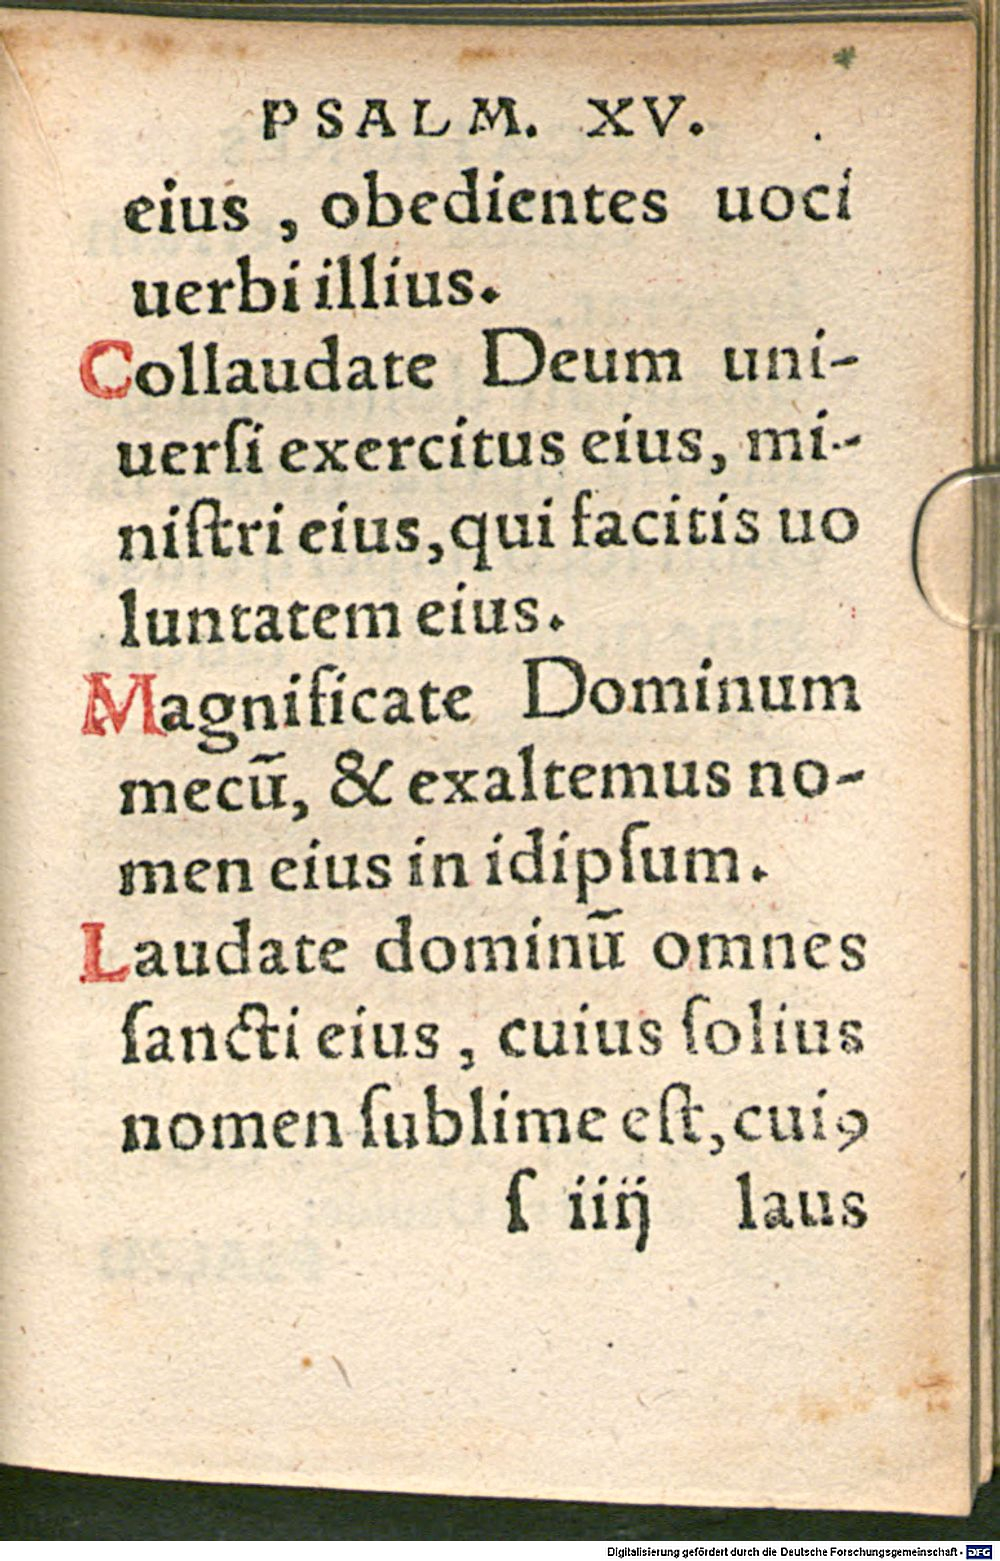 PSALM. XV.
eius , obedientes uoci
uerbi illius.
Collaudate Deum uni-
uerſi exercitus eius, mi-
niſtri eius, qui facitis uo
luntatem eius.
Magnificate Dominum
mecū, & exaltemus no-
men eius in idipſum.
Laudate dominū omnes
ſancti eius , cuius ſolius
nomen ſublime eſt, cuiꝯ
ſ iiij laus
Digitalisierung gefördert durch die Deutsche Forschungsgemeinschaft - DFG